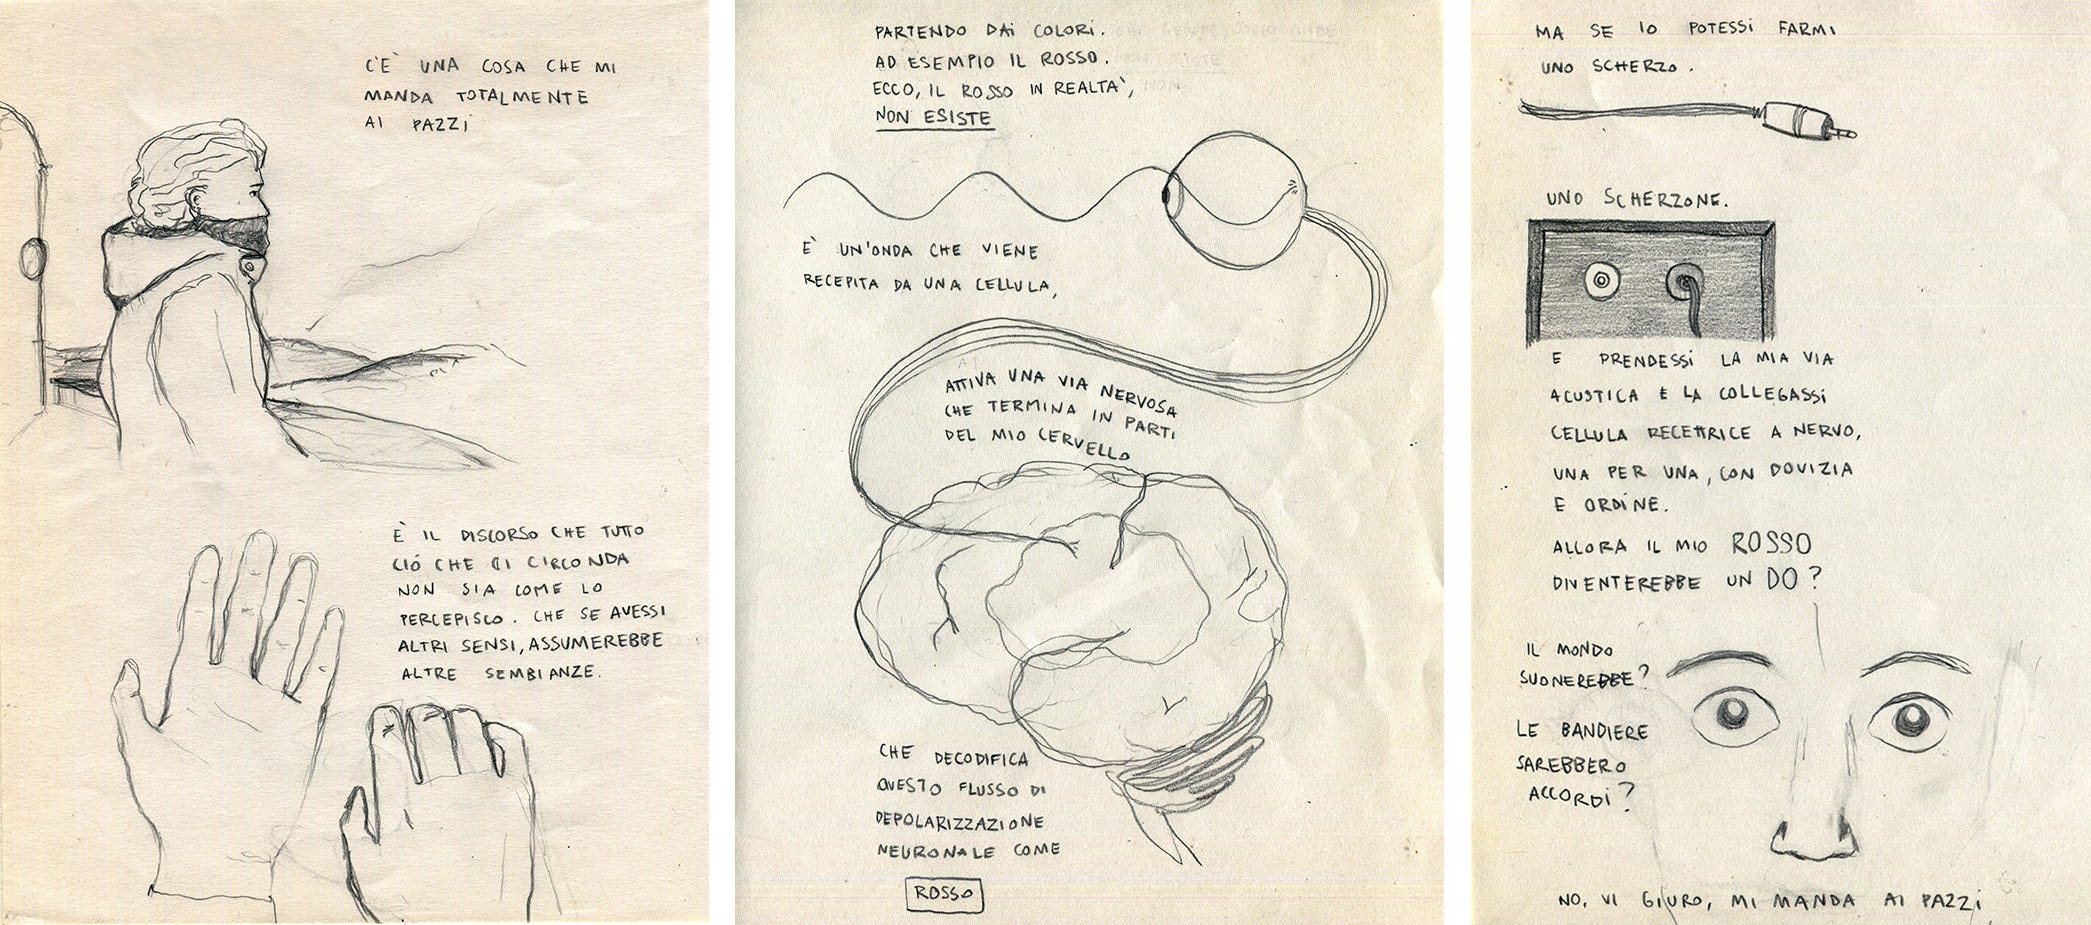 C'È UNA COSA CHE MI
MANDA TOTALMENTE
AI PAZZI
È IL DISCORSO CHE TUTTO
CIÓ CHE CI CIRCONDA
NON SIA COME LO
PERCEPISCO. CHE SE AVESSI
ALTRI SENSI, ASSUMEREBBE
ALTRE SEMBIANZE.
PARTENDO DAI COLORI.
AD ESEMPIO IL ROSSO.
ECCO, IL ROSSO IN REALTA',
NON ESISTE
È UN'ONDA CHE VIENE
RECEPITA DA UNA CELLULA,
ATTIVA UNA VIA NERVOSA
CHE TERMINA IN PARTI
DEL MIO CERVELLO
CHE DECODIFICA
QUESTO FLUSSO DI
DEPOLARIZZAZIONE
NEURONALE COME
ROSSO
MA SE IO POTESSI FARMI
UNO SCHERZO.
UNO SCHERZONE.
E PRENDESSI LA MIA VIA
ACUSTICA E LA COLLEGASSI
CELLULA RECETTRICE A NERVO,
UNA PER UNA, CON DOVIZIA
E ORDINE.
ALLORA IL MIO ROSSO
DIVENTEREBBE UN DO?
IL MONDO
SUONEREBBE?
LE BANDIERE
SAREBBERO
ACCORDI?
NO, VI GIURO, MI MANDA AI PAZZI